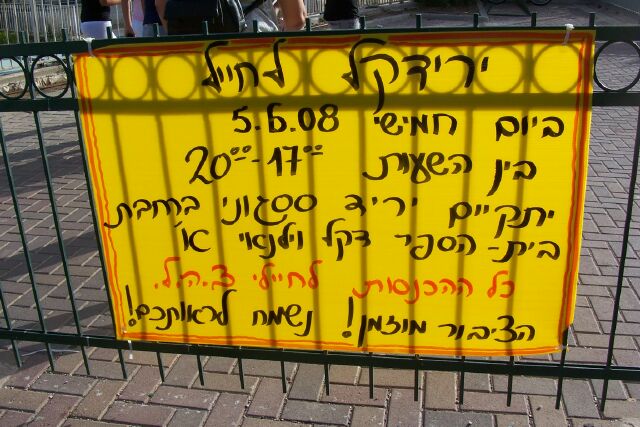 ירידקל לחייל
ביום חמישי 5.6.08
בין השעות 17⁰⁰-20⁰⁰
יתקיים יריד ססגוני ברחבת
בית-הספר דקל וילנאי א'
כל ההכנסות לחיילי צ.ה.ל.
הציבור מוזמן! נשמח לראותכם!